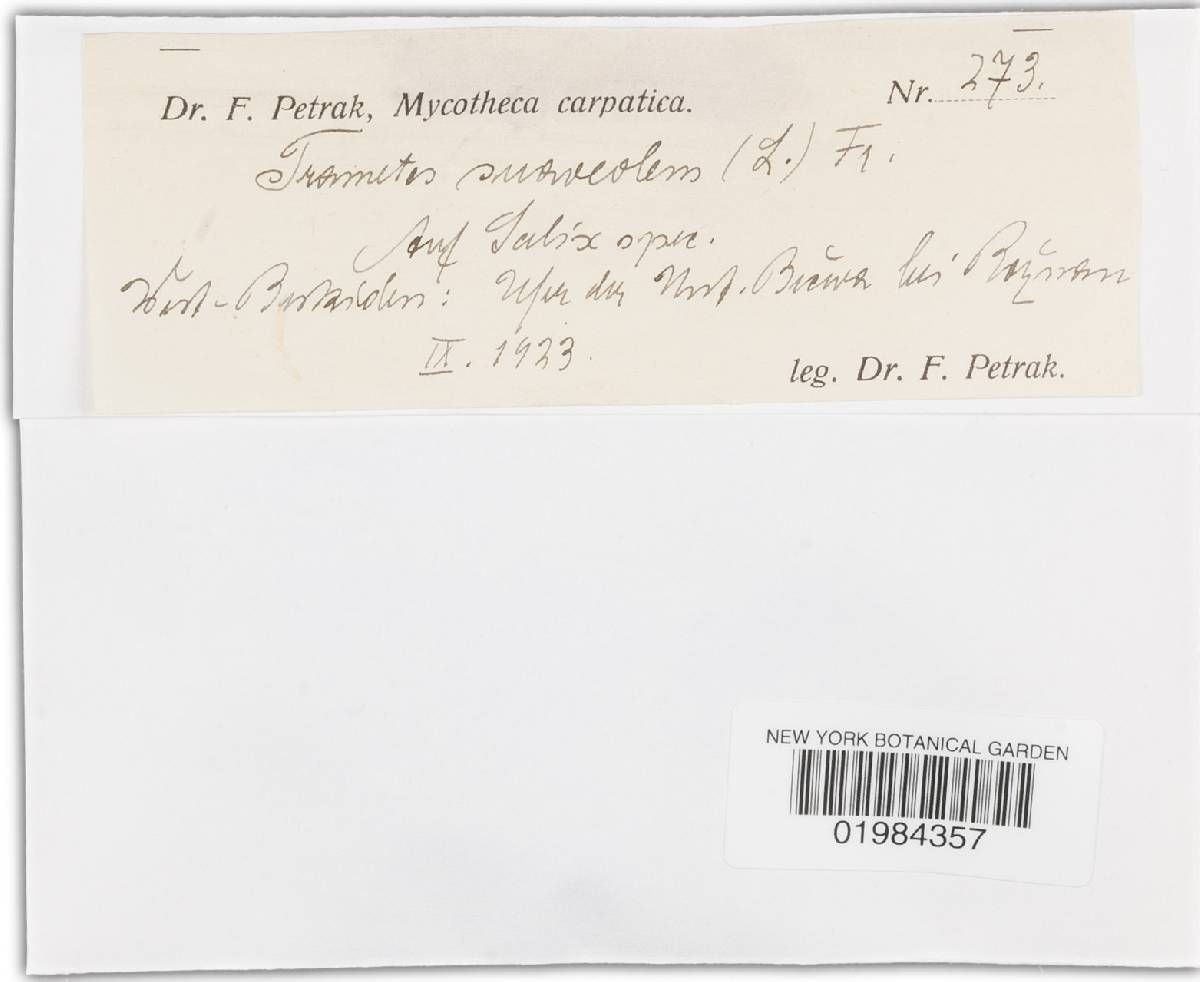 Dr. F. Petrak, Mycotheca carpatica.
Nr. 273.
Trametes suaveolens (L.) Fr.
Auf Salix spec.
West-Beskiden: Ufer der Unt. Bečwa bei Rožnau
IX. 1923.
leg. Dr. F. Petrak.
NEW YORK BOTANICAL GARDEN
01984357